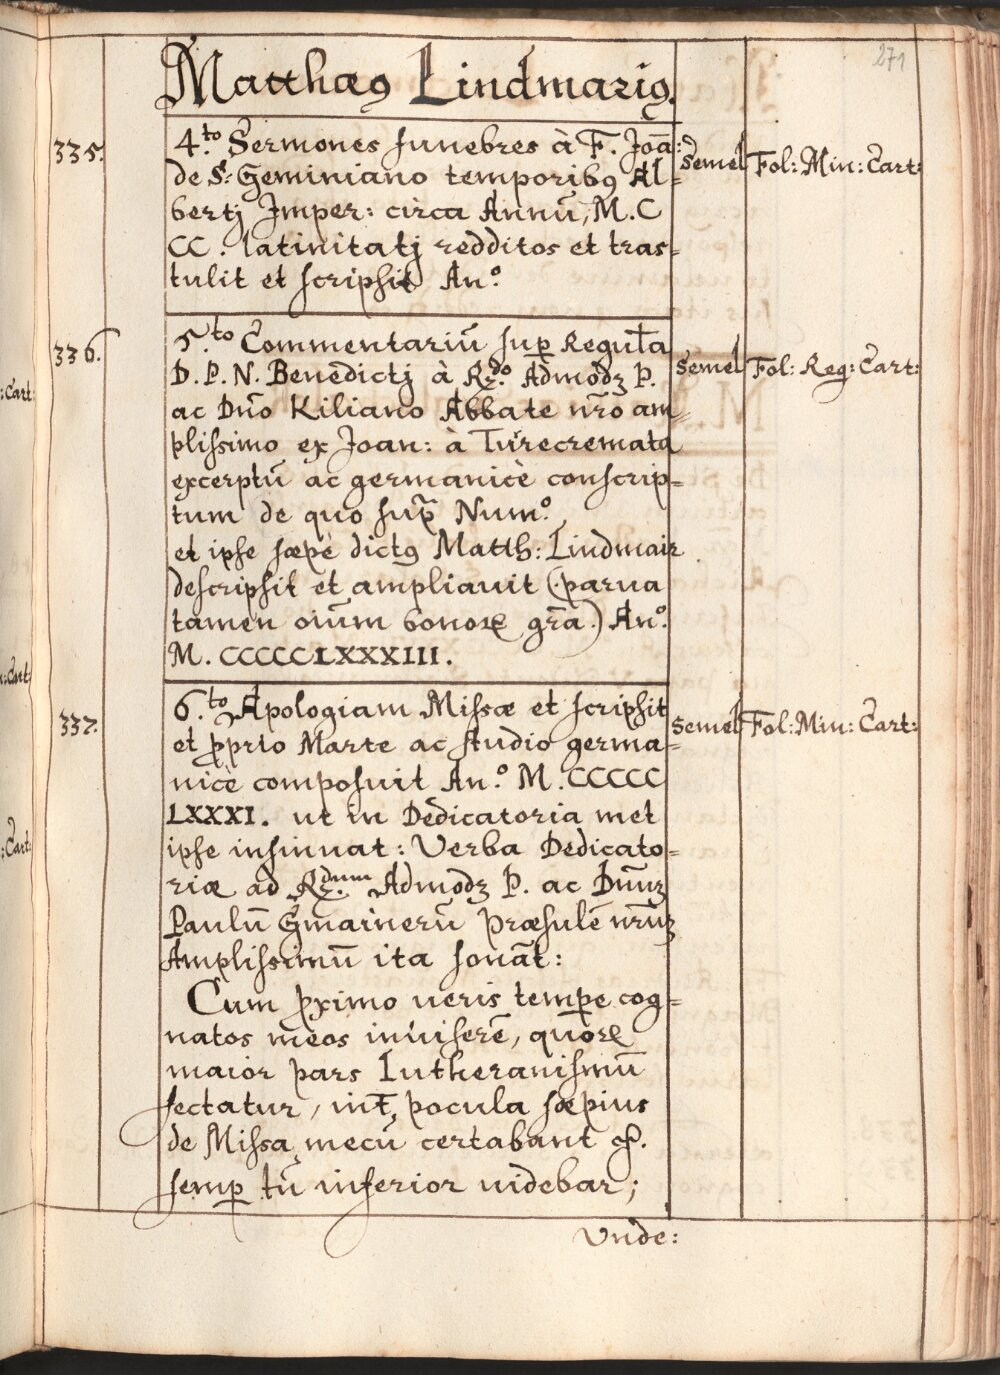 271
Matthæꝯ Lindmariꝯ.
335.
4.to Sermones funebres à F. Joā:
de S: Geminiano temporibꝯ Al=
bertj Imper: circa Annū, M. C
CC. latinitatj redditos et tras=
tulit et scripsit An.o
Semel
Fol: Min: Cart:
336.
5.to Commentariū sup̱ Regulā
D. P. N. Benedictj à Rz.do Admodz P.
ac Dn̄o Kiliano Abbate nr̄o am=
plissimo ex Joan: à Turecremata
excerptū ac germanicè conscrip=
tum de quo sup̄ Num.o
et ipse sæpè dictꝯ Matth: Lindmair
descripsit et ampliauit (parua
tamen oīum bonoꝝ gr̄a.) An.o
M. CCCCCLXXXIII.
Semel
Fol: Reg: Cart:
337.
6.to Apologiam Missæ et scripsit
et ꝓprio Marte ac studio germa=
nicè composuit An.o M. CCCCC
LXXXI. ut in Dedicatoria met
ipse insinuat: Verba Dedicato=
riæ ad Rz.dum Admodz P. ac Dn̄uz
Paulū Gmainerū præsulē nr̄uz
Amplissimū ita sonāt:
Cum ꝓximo ueris temp̱e cog=
natos meos inuiserē, quoꝝ
maior pars Lutheranismū
sectatur, int̄, pocula sæpius
de Missa mecū certabant &.
semp̱ tn̄ inferior uidebar;
Semel
Fol: Min: Cart:
Vnde:
:Cart:
:Cart:
:Cart: